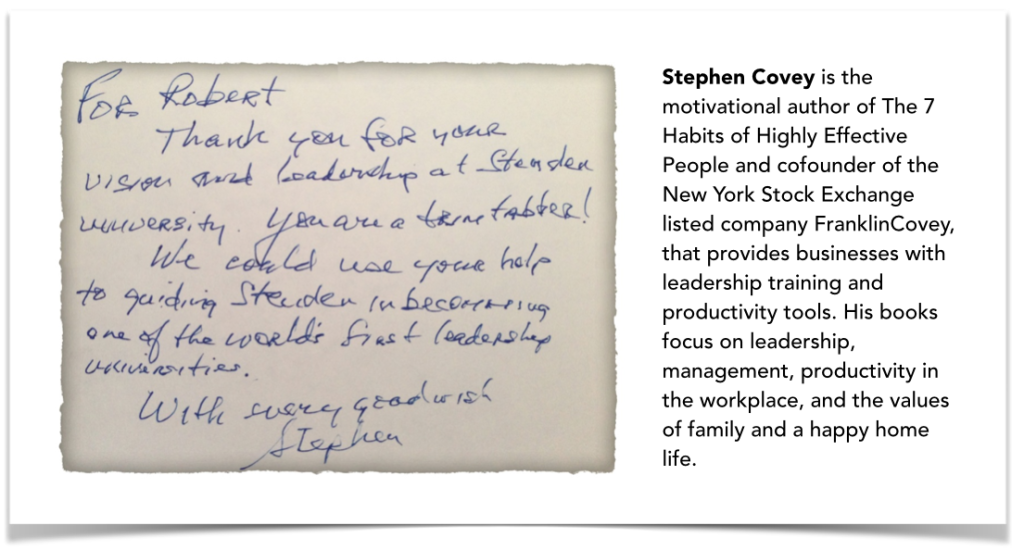 For Robert
Thank you for your
vision and leadership at Stenden
university. You are a trimtabber!
We could use your help
to guiding Stenden in becomming
one of the world's first leadership
universities.
With every good wish
Stephen
Stephen Covey is the
motivational author of The 7
Habits of Highly Effective
People and cofounder of the
New York Stock Exchange
listed company FranklinCovey,
that provides businesses with
leadership training and
productivity tools. His books
focus on leadership,
management, productivity in
the workplace, and the values
of family and a happy home
life.